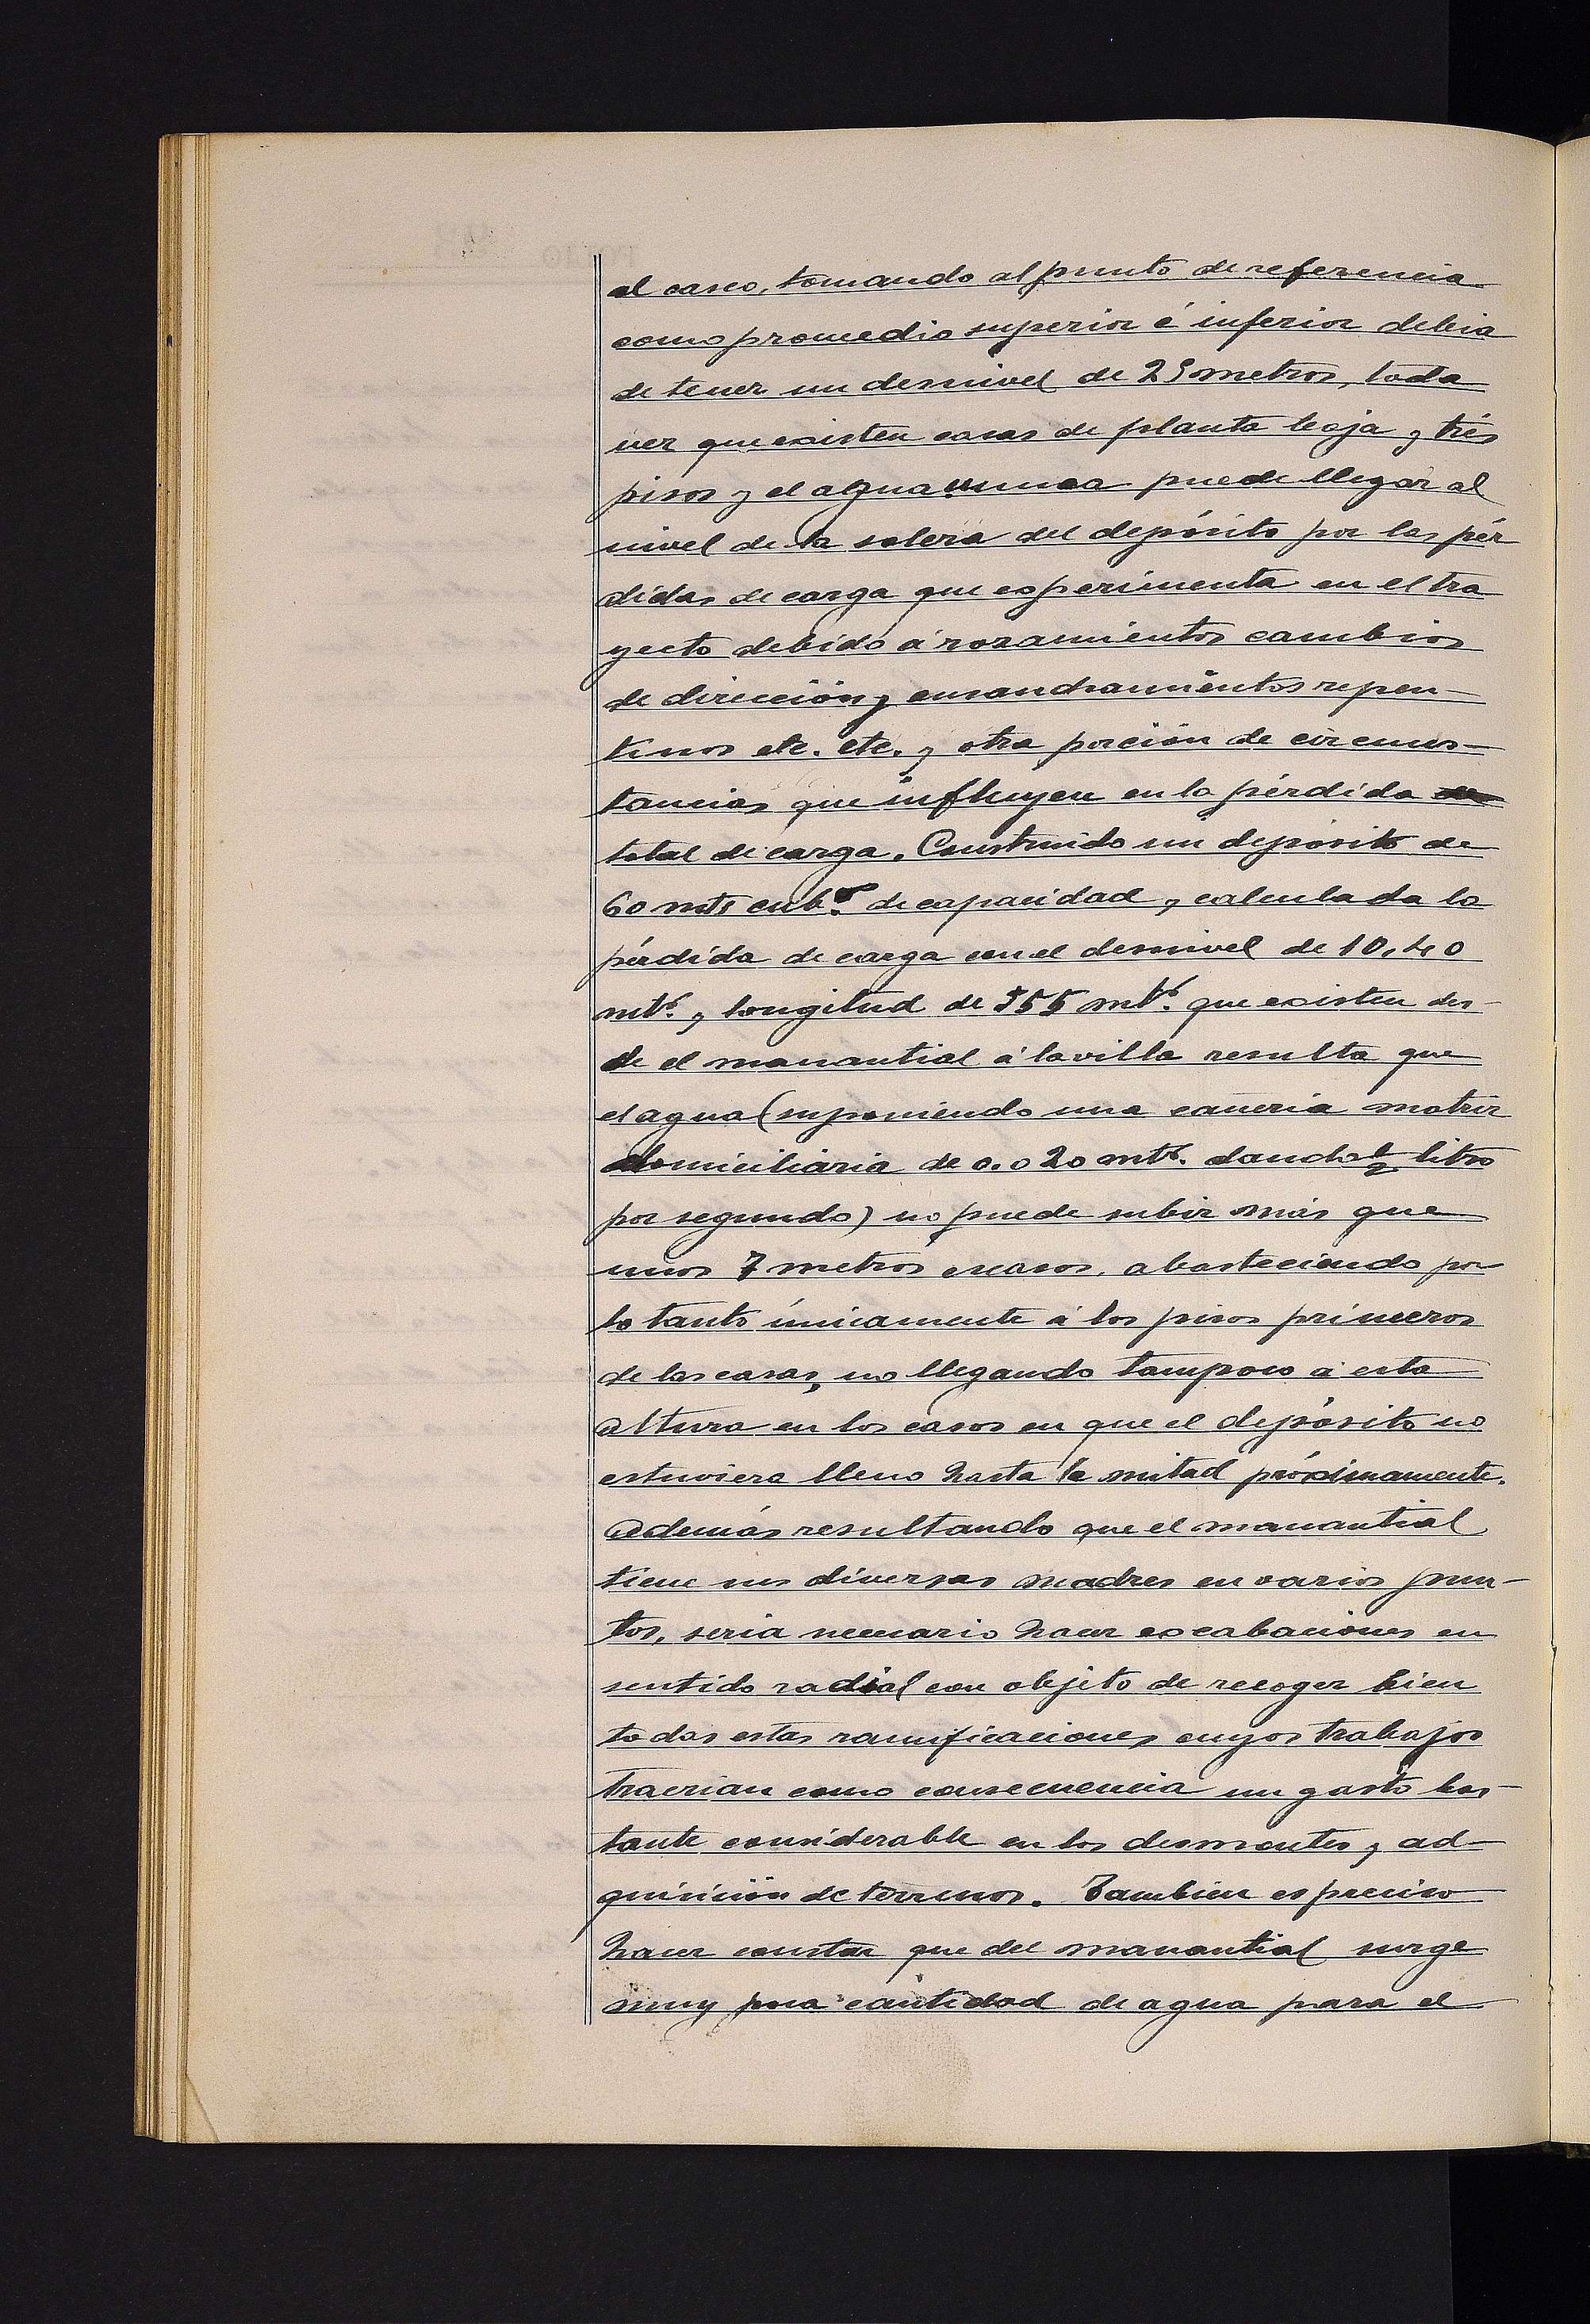 al casco, tomando al punto de referencia
como promedio superior é inferior debia
de tener un desnivel de 25 metros, toda
vez que existen casas de planta baja y trés
pisos y el agua nunca puede llegar al
nivel de la solera del depósito por las pér
didas de carga que experimenta en el tra
yecto debido á rozamientos cambios
de dirección y ensanchamientos repen-
tinos etc. etc. y otra porción de circuns-
tancias que influyen en la pérdida
total de carga. Construido un depósito de
60 mts cubos. de capacidad y calculada la
pérdida de carga con el desnivel de 10,40
mts. y longitud de 355 mts. que existen des-
de el manantial á la villa resulta que
el agua (suponiendo una cañeria matriz
domiciliaria de 0.020 mts. dando ½ litro
por segundo) no puede subir más que
unos 7 metros escasos, abasteciendo por
lo tanto únicamente á los pisos primeros
de las casas, no llegando tampoco á esta
altura en los casos en que el depósito no
estuviera lleno hasta la mitad próximamente.
Además resultando que el manantial
tiene sus diversas madres en varios pun-
tos, seria necesario hacer excabaciones en
sentido radial con objeto de recoger bien
todas estas ramificaciones cuyos trabajos
traerian como consecuencia un gasto bas-
tante considerable en los desmontes y ad-
quisición de terrenos. Tambien es preciso
hacer constar que del manantial surge
muy poca cantidad de agua para el